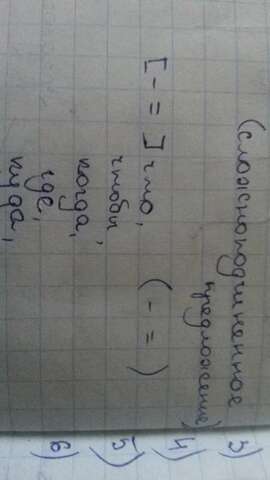 (сложноподчиненное 3)
предложение) 4)
[ - = ] что, ( - = )
чтобы, 5)
когда,
где, 6)
куда,